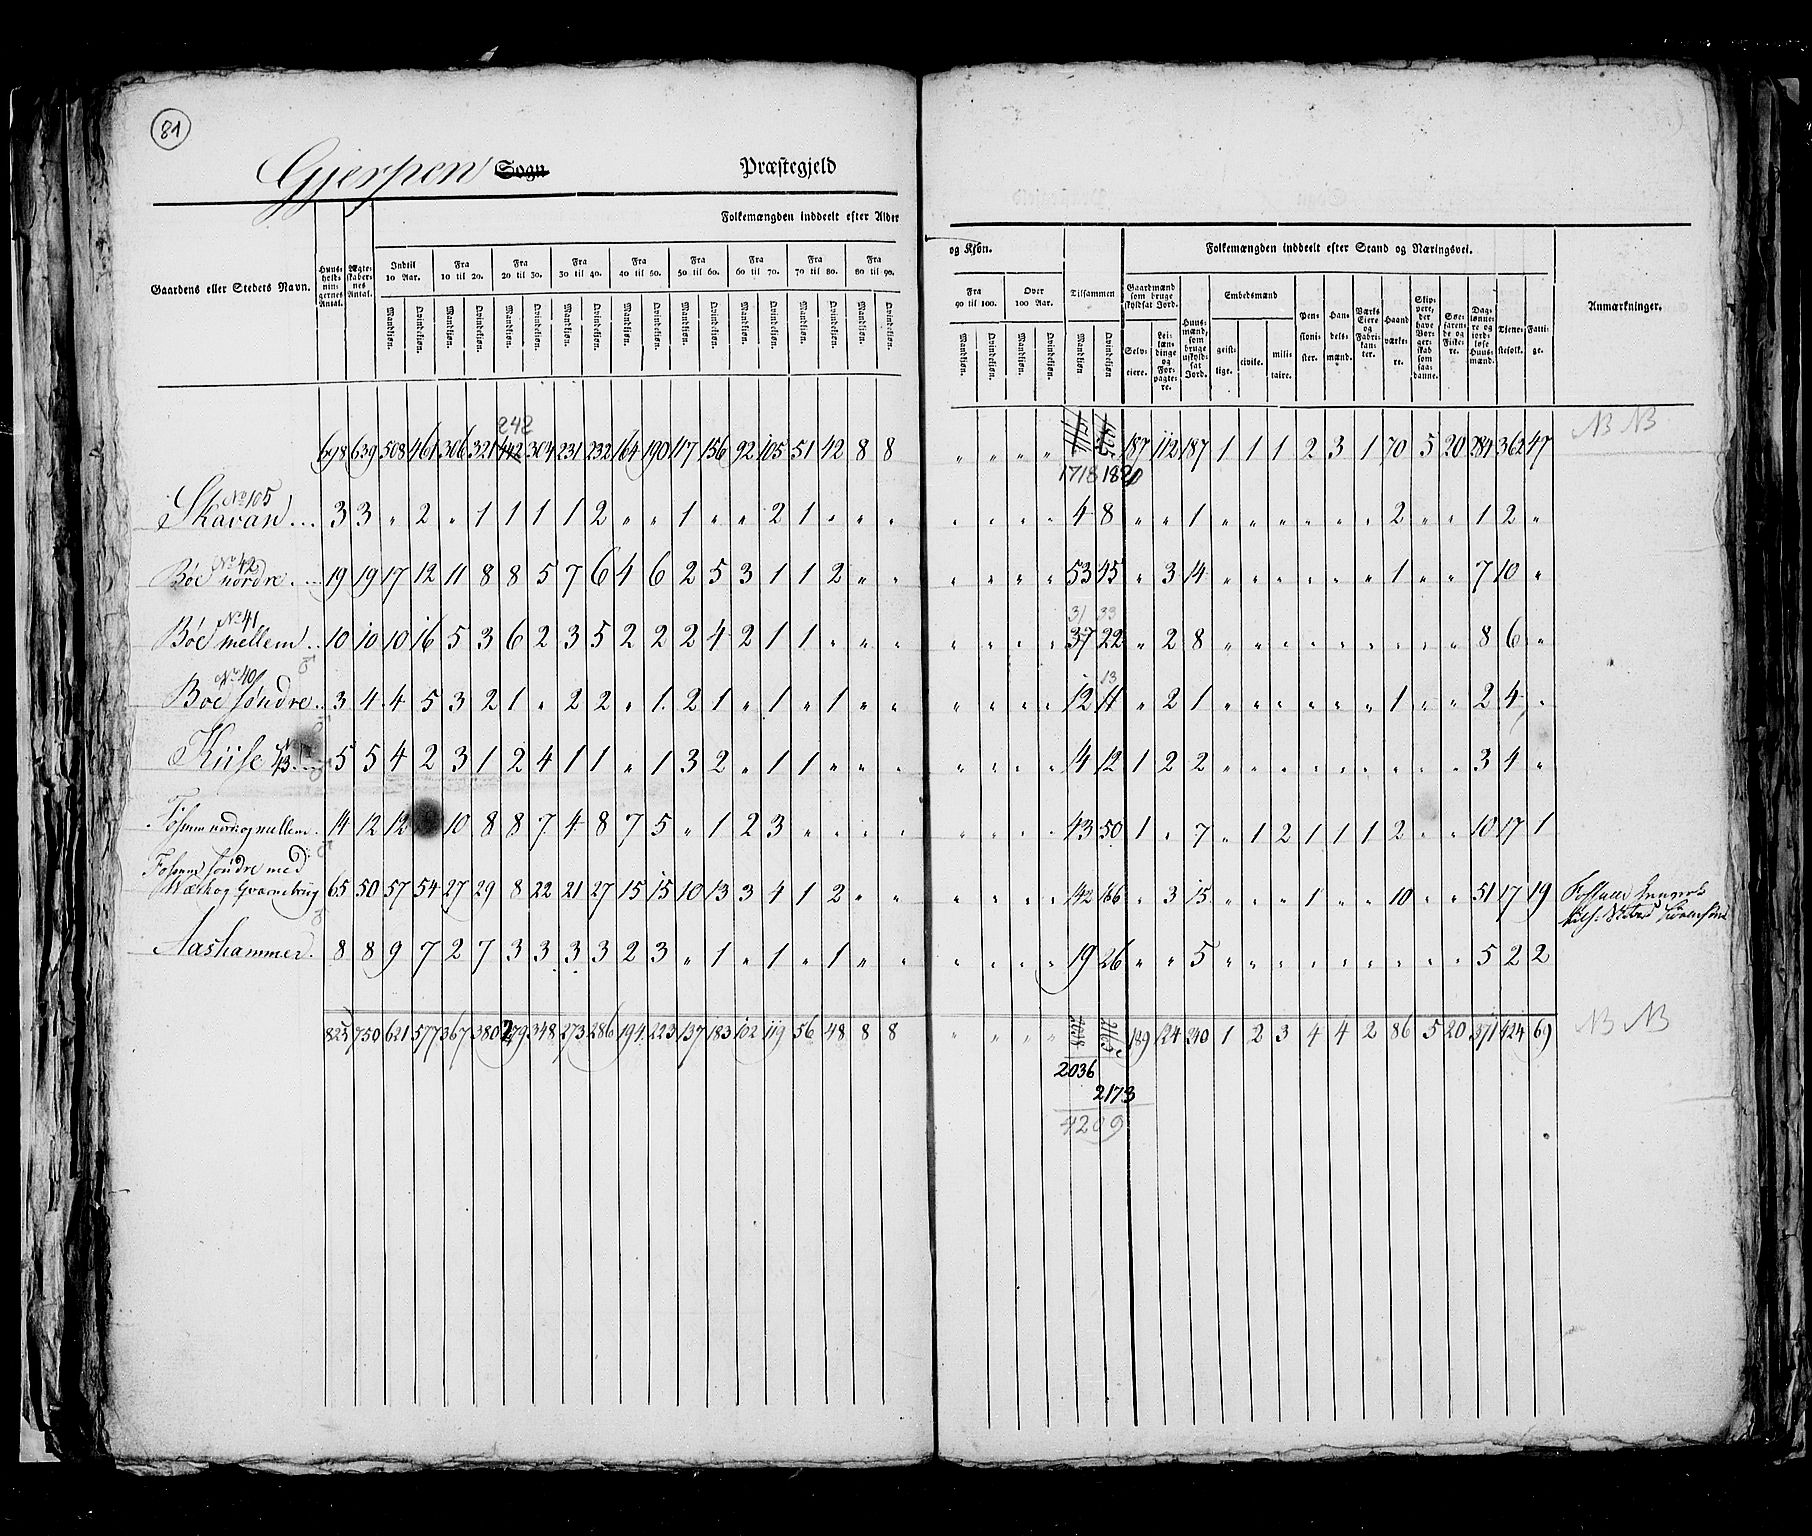 81
Gjerpen Sogn Præstegjeld
Folkemængden inddeelt efter Alder og Kjön. Folkemængden inddeelt efter Stand og Næringsvei.
Gaardens eller Stedets Navn. Huusholdningernes Antal. Ægteskabernes Antal. Indtil 10 Aar. Fra 10 til 20. Fra 20 til 30. Fra 30 til 40. Fra 40 til 50. Fra 50 til 60. Fra 60 til 70. Fra 70 til 80. Fra 80 til 90. Fra 90 til 100. Over 100 Aar. Tilsammen Gaardmænd som bruge skyldsat Jord. Huusmænd, som bruge uskyldsat Jord. Embedsmænd Pensionister. Handelsmænd. Værks Eiere og Fabrikanter. Haandværkere. Skippere, der have Borgerskab som saadanne. Søefarende og Fiskere. Daglønnere og jordløse Huusmænd. Tjenestefolk. Fattige. Anmærkninger.
Mandkiön. Qvindekiön. Mandkiön. Qvindekiön. Mandkiön. Qvindekiön. Mandkiön. Qvindekiön. Mandkiön. Qvindekiön. Mandkiön. Qvindekiön. Mandkiön. Qvindekiön. Mandkiön. Qvindekiön. Mandkiön. Qvindekiön. Mandkiön. Qvindekiön. Mandkiön. Qvindekiön. Mandkiön Qvindekiön Selveiere. Leilændinge og Forpagtere. geistlige. civile. militaire.
242
698 639 508 461 306 321 442 304 231 232 164 190 117 156 92 105 51 42 8 8 " " " " 187 112 187 1 1 1 2 3 1 70 5 20 284 362 47 NB NB
1718 1820
No 105
Skavan... 3 3 " 2 " 1 1 1 1 2 " " 1 " " 2 1 " " " " " " " 4 8 " " 1 " " " " " " 2 " " 1 2 "
No 42
Böe nordre. ... 19 19 17 12 11 8 8 5 7 6 4 6 2 5 3 1 1 2 " " " " " " 53 45 " 3 14 " " " " " " 1 " " 7 10 "
No 41 31 33
Böe mellem. .. 10 10 10 16 5 3 6 2 3 5 2 2 2 4 2 1 1 " " " " " " " 37 22 " 2 8 " " " " " " " " " 8 6 "
No 40 13
Böe söndre.. 3 4 4 5 3 2 1 " 2 2 " 1 2 1 " 1 " 1 " " " " " " 12 11 " 2 1 " " " " " " 1 " " 2 4 "
Kiise 43. 5 5 4 2 3 1 2 4 1 1 " 1 3 2 " 1 1 " " " " " " " 14 12 1 2 2 " " " " " " " " " 3 4 "
Fossum nord og mellem. 14 12 12 10 8 8 7 4 8 7 5 " 1 2 3 " " " " " " " " 43 50 1 " 7 " 1 2 1 1 1 2 " " 10 17 1
Fossum söndre med
Værk og Qvarnebrug 65 50 57 54 27 29 8 22 21 27 15 15 10 13 3 4 1 2 " " " " " " 142 166 " 3 15 " " " 1 " " 10 " " 51 17 19
Aashammer. 8 8 9 7 2 7 3 3 3 3 2 3 " 1 " 1 " 1 " " " " " " 19 26 " " 5 " " " " " " " " " 5 2 2
825 750 621 577 367 380 279 348 273 286 194 223 137 183 102 119 56 48 8 8 " " " " 2163 189 124 240 1 2 3 4 4 2 86 5 20 371 424 69 NB NB
2036
2173
4209